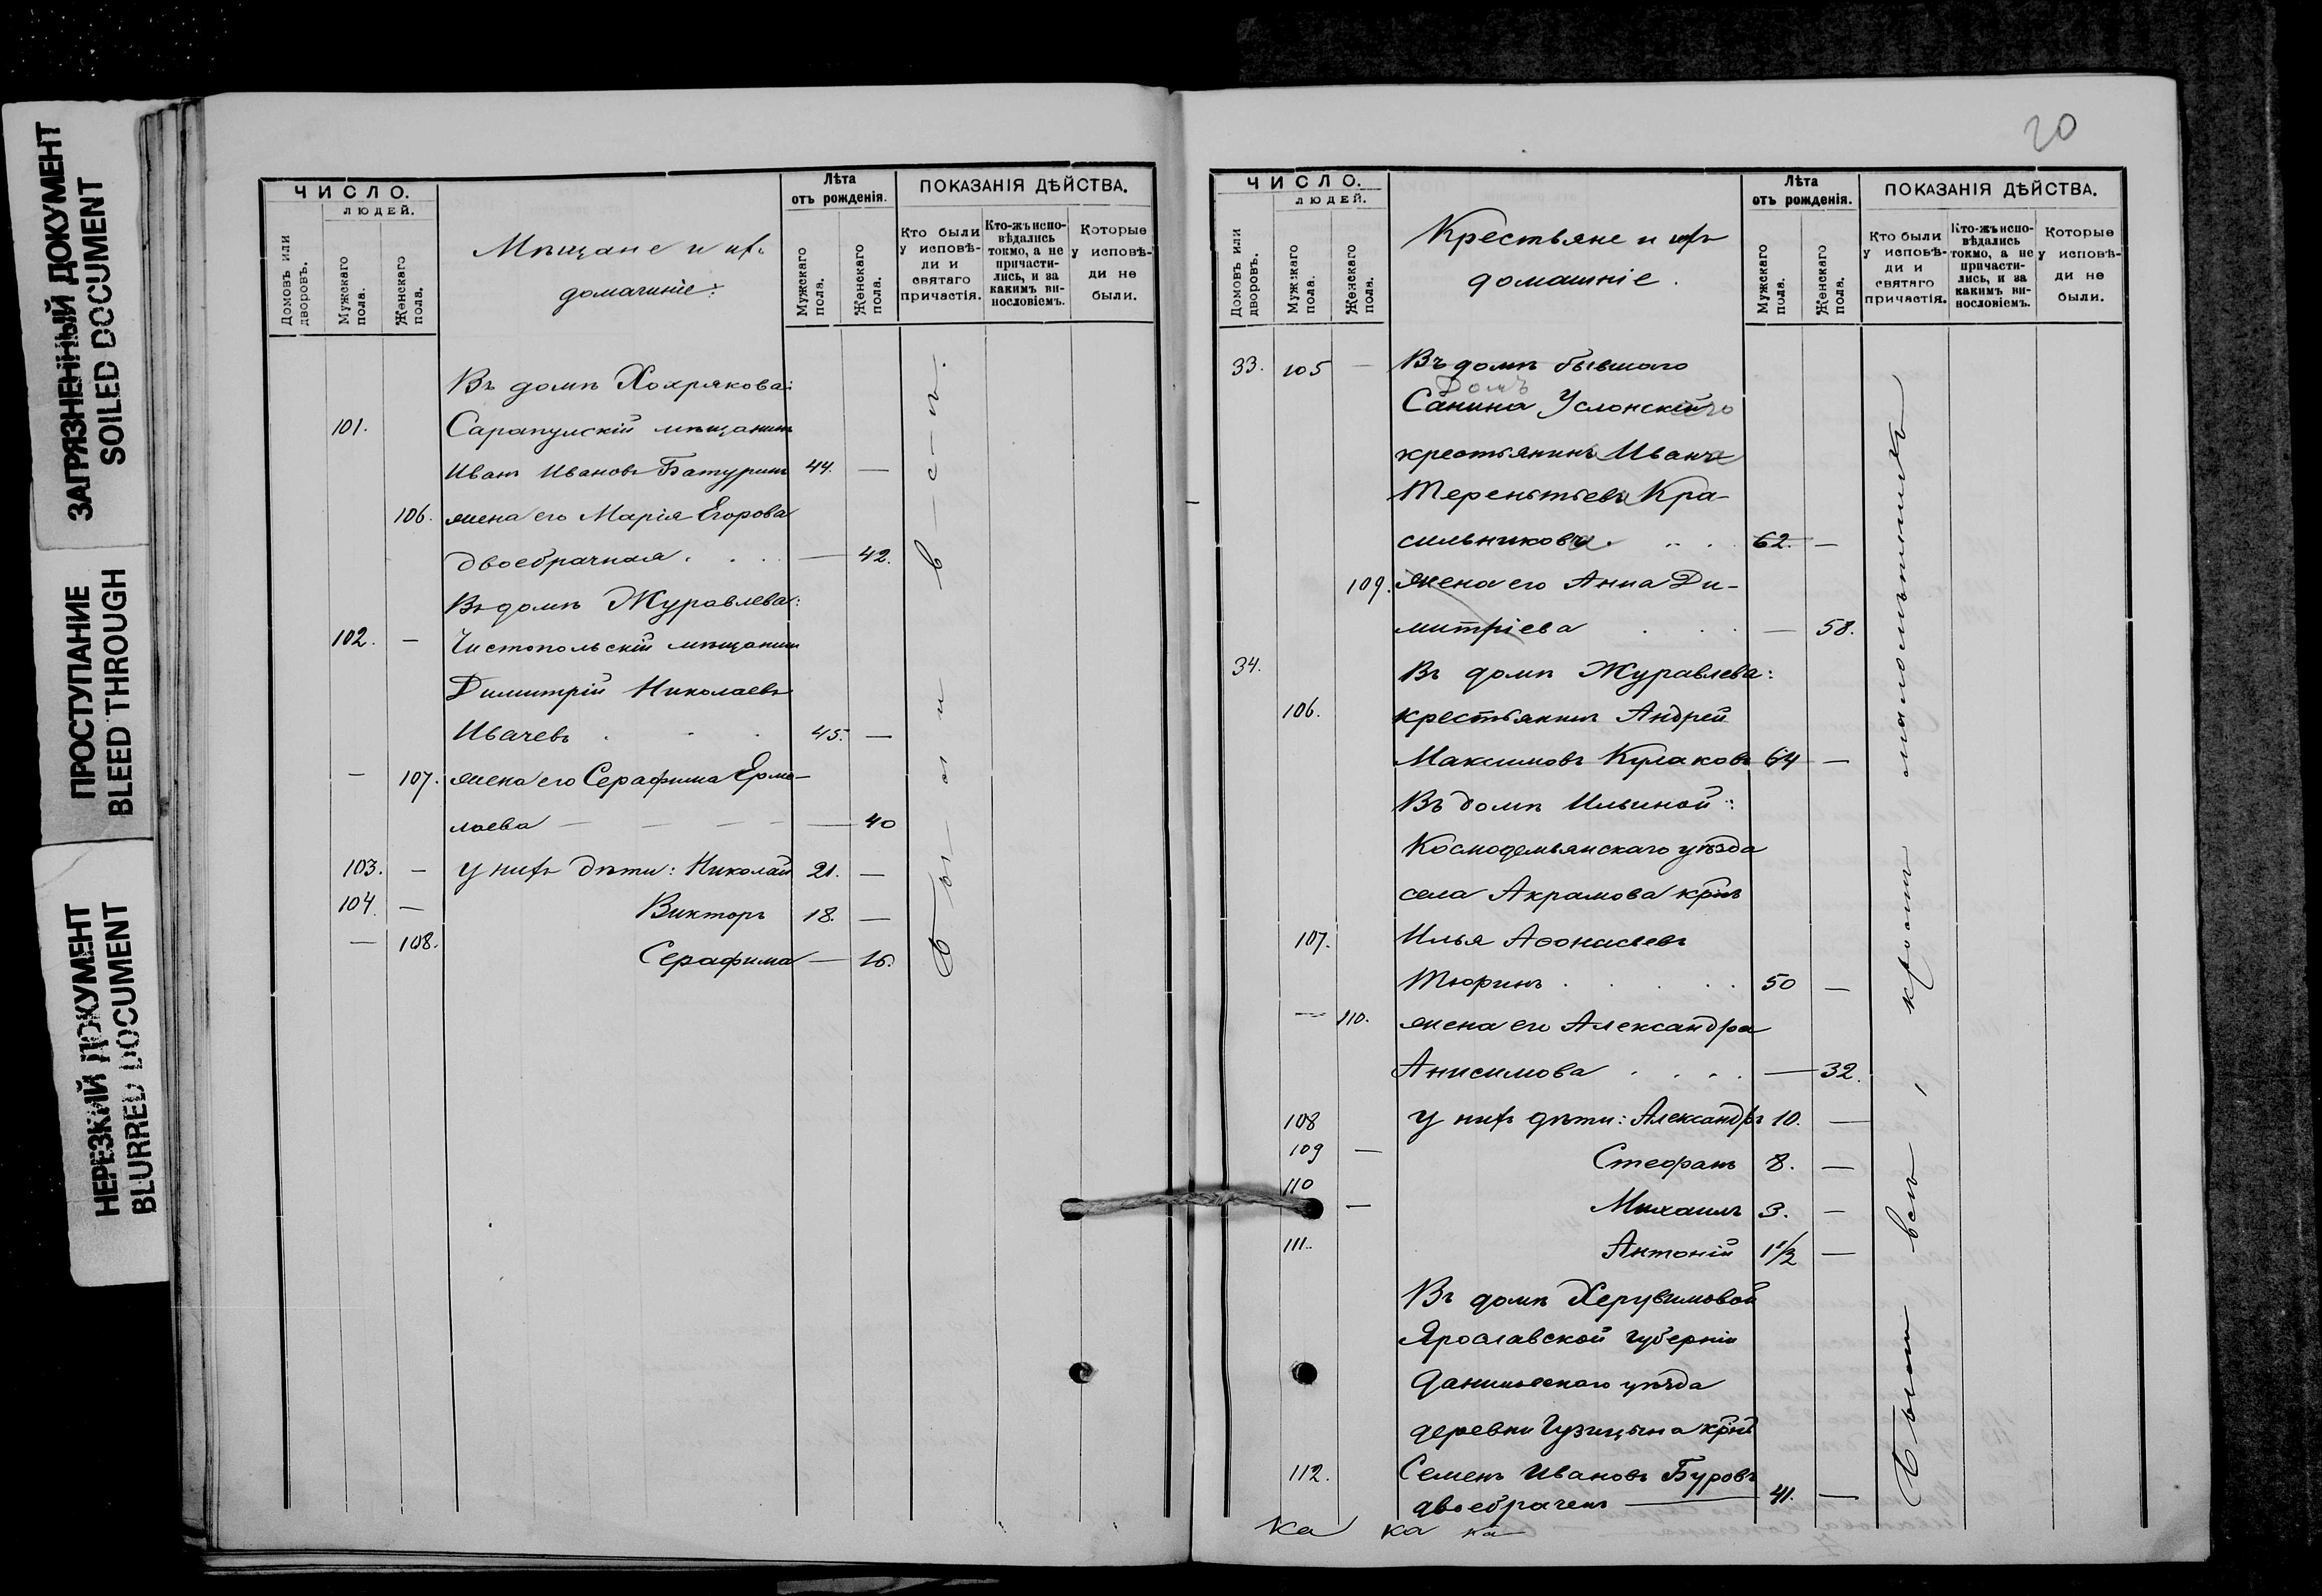 ЗАГРЯЗНЕННЫЙ ДОКУМЕНТ
SOILED DOCUMENT
ПРОСТУПАНИЕ
BLEED THROUGH
НЕРЕЗКИЙ ДОКУМЕНТ
BLURRED DOCUMENT
ЧИСЛО.
ЛЮДЕЙ.
Домовъ или дворовъ.
Мужскаго пола.
Женскаго пола.
Мѣщане и ихъ
домашніе:
Лѣта
отъ рожденія.
Мужскаго пола.
Женскаго пола.
ПОКАЗАНІЯ ДѢЙСТВА.
Кто были у исповѣди и святаго причастія.
Кто-жъ исповѣдались токмо, а не причастились, и за какимъ винословіемъ.
Которые у исповѣди не были.
Въ домѣ Хохрякова:
101. Сарапулскій мѣщанинъ
Иванъ Ивановъ Батуринъ 44. —
106. жена его Марія Егорова
двоебрачная . . . — 42.
Въ домѣ Журавлева:
102. — Чистопольскій мѣщанинъ
Димитрій Николаевъ
Ивачевъ . . . 45. —
— 107. жена его Серафима Ермо-
лаева — — — — — 40
103. — У нихъ дѣти: Николай 21. —
104. — Викторъ 18. —
— 108. Серафима — 16.
Были всѣ.
20
ЧИСЛО.
ЛЮДЕЙ.
Домовъ или дворовъ.
Мужскаго пола.
Женскаго пола.
Крестьяне и ихъ
домашніе.
Лѣта
отъ рожденія.
Мужскаго пола.
Женскаго пола.
ПОКАЗАНІЯ ДѢЙСТВА.
Кто были у исповѣди и святаго причастія.
Кто-жъ исповѣдались токмо, а не причастились, и за какимъ винословіемъ.
Которые у исповѣди не были.
33. 105 — Въ домѣ бывшаго
Домъ
Санина Услонскій
крестьянинъ Иванъ
Терентьевъ Кра-
сильниковъ . . . 62. —
109. жена его Анна Ди-
митріева . . . — 58.
34. Въ домѣ Журавлева:
106. крестьянинъ Андрей
Максимовъ Кулаковъ 64 —
Въ домѣ Ильиной:
Космодемьянскаго уѣзда
села Акрамова крнъ
107. Илья Аѳонасьевъ
Тюринъ . . . . . 50 —
— 110. жена его Александра
Анисимова . . . . — 32.
108 У нихъ дѣти: Александръ 10. —
109 — Стефанъ 8. —
110 — Михаилъ 3. —
111. Антоній 1 1/2 —
Въ домѣ Херувимовой
Ярославской губерніи
Даниловскаго уѣзда
деревни Гузицына крнъ
112. Семенъ Ивановъ Буровъ
двоебраченъ — 41. —
Были всѣ, кромѣ малолѣтнихъ
ка ка ка